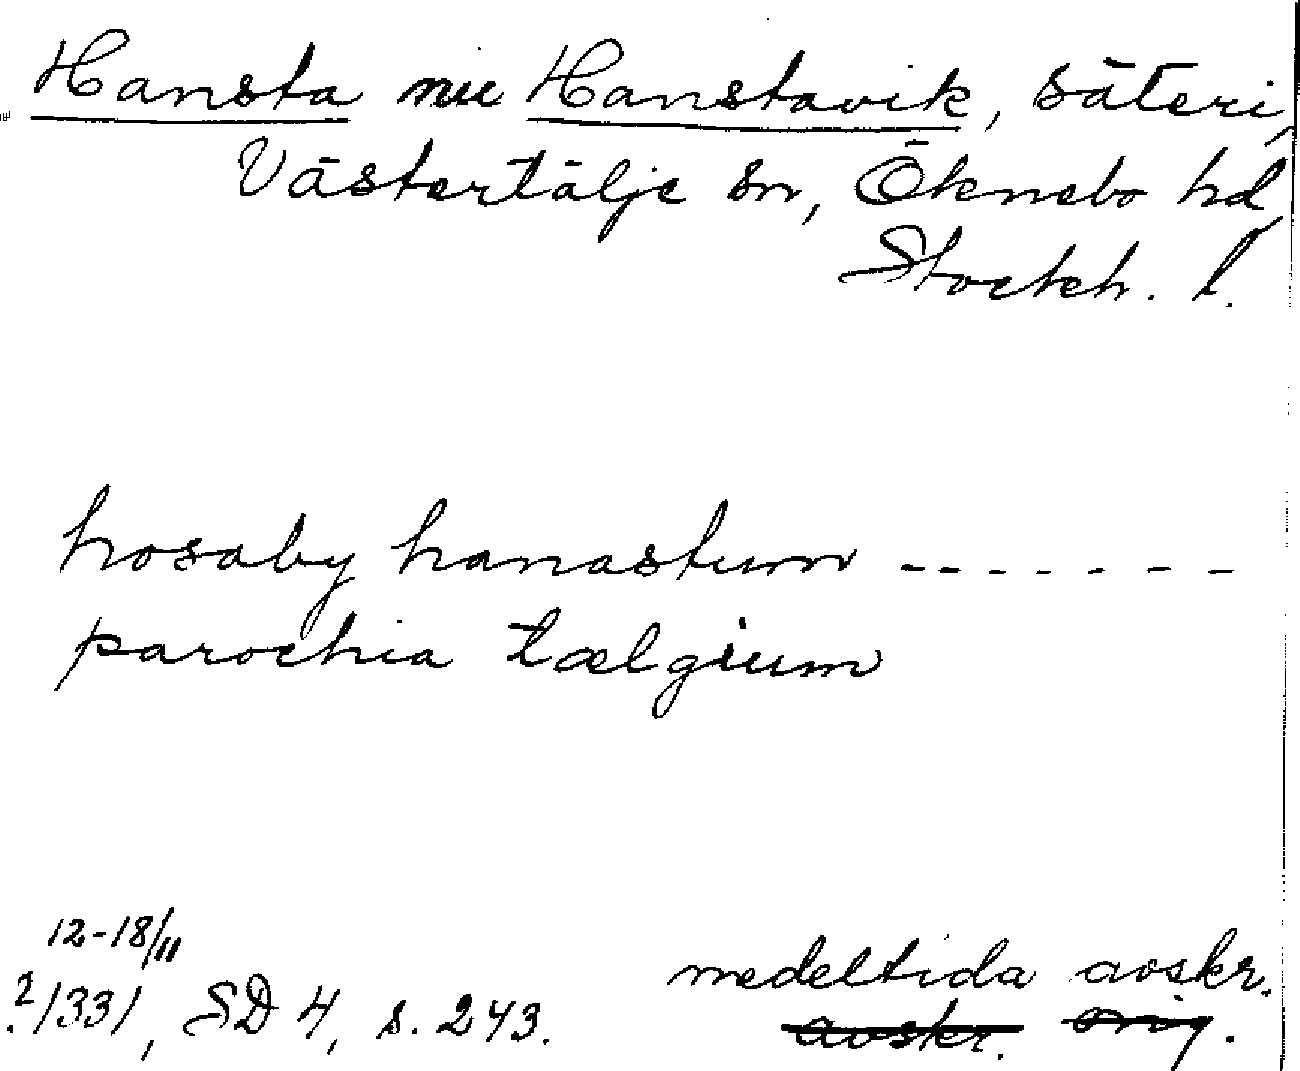 Hansta nu Hanstavik, säteri,
Västertälje sn, Öknebo hd,
Stockh. l.
hosaby hanastum - - - - - - -
parochia tælgium
12-18/11
?1331, SD 4, s. 243.
medeltida avskr.
avskr. orig.